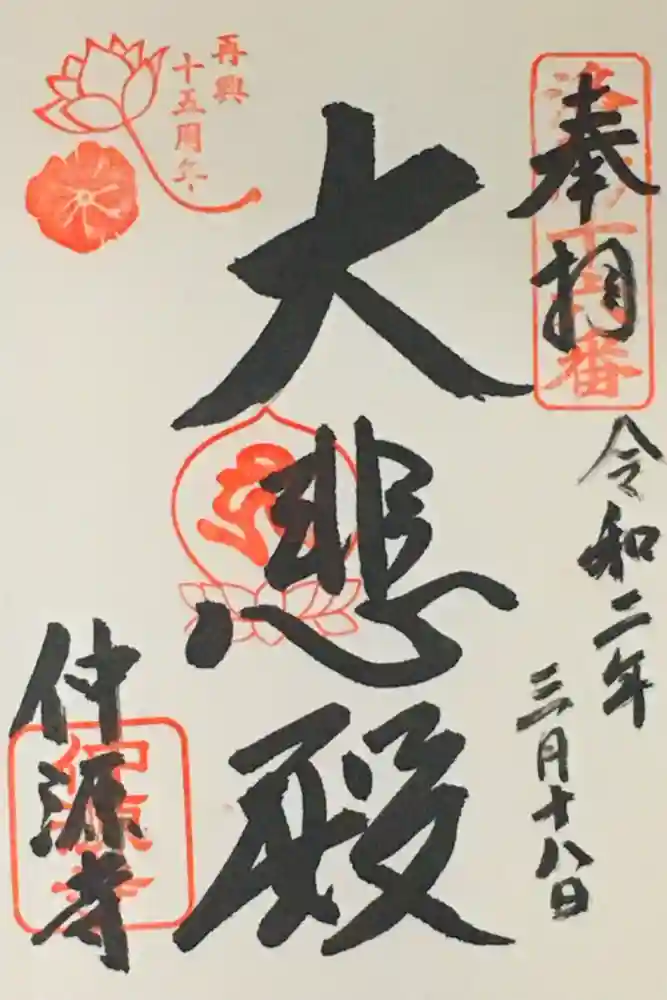 奉拝
令和二年
三月十八日
大悲殿
再興
十五周年
仲源寺
仲源寺